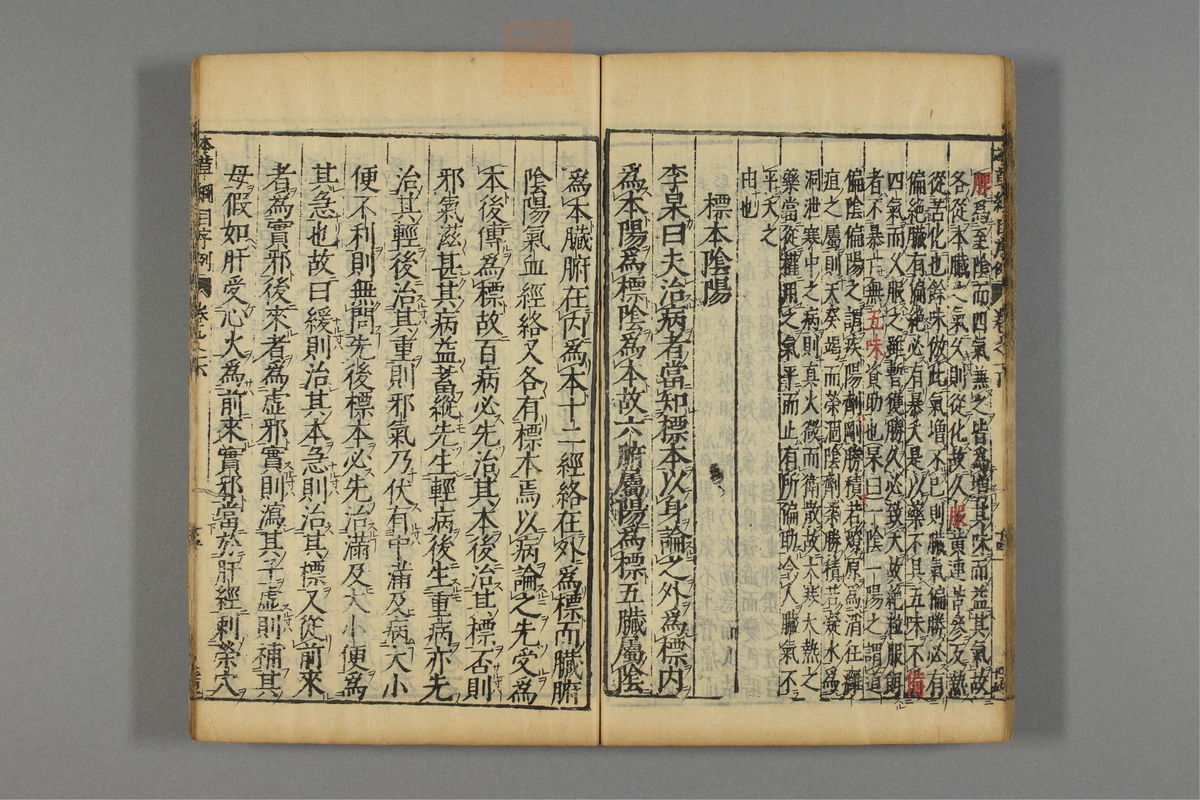 脾爲至陰而四氣兼之皆爲增其味而益其氣故
各從本臟之氣久則從化故久服黄連苦參反熱
從苦化也餘味倣此氣增不已則臟氣偏勝必有
偏絶臟有偏絶必有暴夭是以藥不具五味不備
四氣而久服之雖暫獲勝久必致夭故絶粒服餌
者不暴亡無五味資助也杲曰一陰一陽之謂道
偏陰偏陽之謂疾陽劑剛勝積若燎原爲消狂癰
疽之屬則天癸竭而榮涸陰劑柔勝積若凝水爲
洞泄寒中之病則真火微而衛散故大寒大熱之
藥當從權用之氣平而止有所偏助令人臟氣不
平夭之
由也
標本陰陽
李杲曰夫治病者當知標本以身論之外爲標内
爲本陽爲標陰爲本故六腑屬陽爲標五臟屬陰
爲本臟腑在内爲本十二經絡在外爲標而臟腑
陰陽氣血經絡又各有標本焉以病論之先受爲
本後傳爲標故百病必先治其本後治其標否則
邪氣滋甚其病益蓄縱先生輕病後生重病亦先
治其輕後治其重則邪氣乃伏有中滿及病大小
便不利則無問先後標本必先治滿及大小便爲
其急也故曰緩則治其本急則治其標又從前來
者爲實邪後來者爲虛邪實則瀉其子虛則補其
母假如肝受心火爲前來實邪當於肝經刺榮穴
本草綱目序例